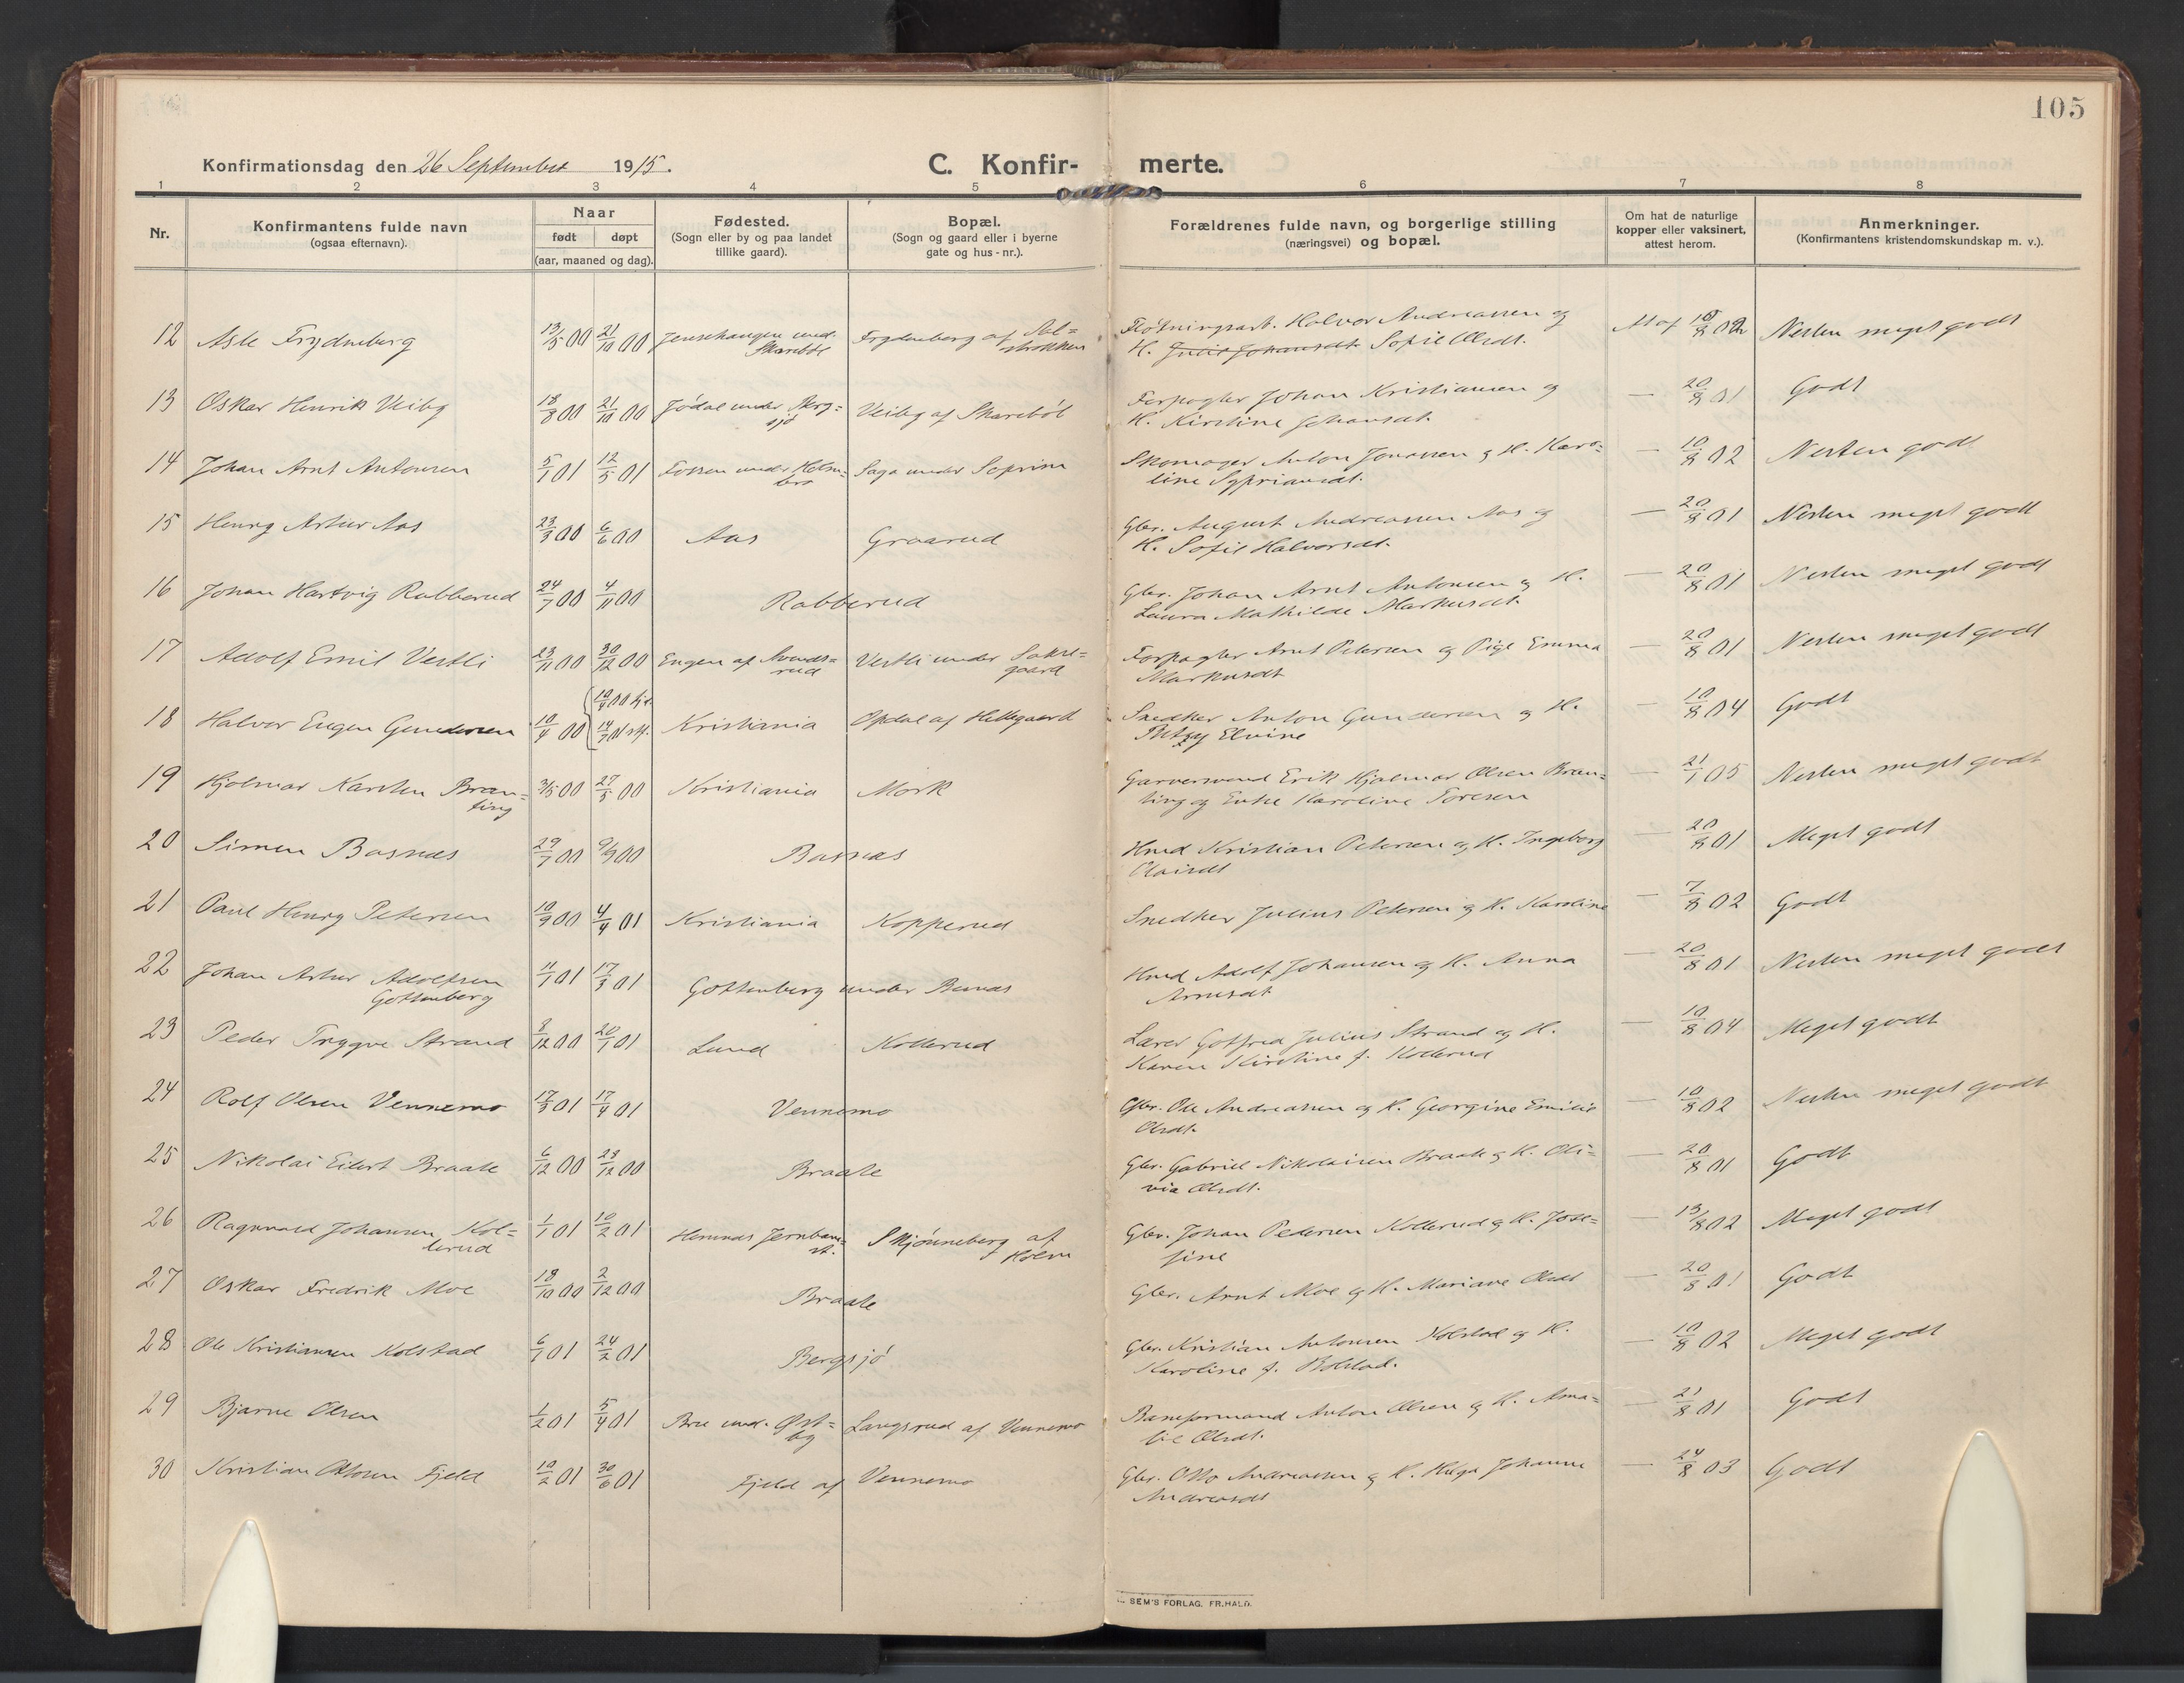 105
Konfirmationsdag den 26 September 1915.
C. Konfir- merte.
1 2 3 4 5 6 7 8
Nr.
Konfirmantens fulde navn
(ogsaa efternavn).
Naar
født døpt
(aar, maaned og dag).
Fødested.
(Sogn eller by og paa landet
tillike gaard).
Bopæl.
(Sogn og gaard eller i byerne
gate og hus-nr.).
Forældrenes fulde navn, og borgerlige stilling
(næringsvei) og bopæl.
Om hat de naturlige
kopper eller vaksinert,
attest herom.
Anmerkninger.
(Konfirmantens kristendomskundskap m. v.).
12 Asle Frydenberg 13/5 00 21/10 00 Jenshaugen und. Frydenberg af
Skarebøl
Fløtningsarb. Halvor Andreassen og
H. Julie Johansdt. Sofie Olsdt. Nesten meget godt
13 Oskar Henrik Veiby 18/8 00 21/10 00 Jødal under Berg= Veiby af Skarebøl
sjø
Forpagter Johan Kristiansen og
H. Kirstine Johansdt. — 20/8 01 Godt
14 Johan Arnt Antonsen 5/1 01 12/5 01 Fossen under Holm= Saga under
bro
Skomager Anton Jonassen og H. Karo=
line Sypriansdt. — 10/8 02 Nesten godt
15 Henry Artur Aas 23/3 00 6/6 00 Aas Graarud
Gbr. August Andreassen Aas og
H. Sofie Halvorsdt. — 20/8 01 Nesten meget godt
16 Johan Hartvig Rabberud 24/7 00 4/11 00 Rabberud
Gbr. Johan Arnt Antonsen og H.
Laura Mathilde Markusdt. — 20/8 01 Nesten meget godt
17 Adolf Emil Vestli 23/11 00 30/12 00 Engen af Vestli under
rud gaard
Forpagter Arnt Petersen og Pige Emma
Markusdt — 20/8 01 Nesten meget godt
18 Halvor Eugen Gundersen 10/4 00 Kristiania Opdal af Hellegaard
Snedker Anton Gundersen og H.
Elvine — 10/8 04 Godt
19 Hjalmar Karsten Bran= 3/5 00 27/5 00 Kristiania Mørk
ting
Garversvend Erik Hjalmar Olsen Bran=
ting og Enke Karoline Toresen — 21/1 05 Nesten meget godt
20 Simen Basnæs 29/7 00 9/9 00 Basnæs
Hmd Kristian Petersen og H. Ingeborg
Olaisdt — 20/8 01 Meget godt
21 Paul Henry Petersen 10/9 00 4/4 01 Kristiania Kopperud
Snedker Julius Petersen og H. Karoline — 7/8 02 Godt
22 Johan Artur Adolfsen 11/1 01 17/3 01 Gøttenberg under
Gøttenberg
Hmd Adolf Johansen og H. Anna
Arnesdt — 20/8 01 Nesten meget godt
23 Peder Trygve Strand 8/12 00 20/1 01 Lund Kollerud
Lærer Gotfred Julius Strand og H.
Karen Kirstine f. Kollerud — 10/8 04 Meget godt
24 Rolf Olsen Vennemo 17/3 01 17/4 01 Vennemo
Gbr. Ole Andreassen og H. Georgine Emilie
Olsdt. — 10/8 02 Nesten meget godt
25 Nikolai Eilert Braate 6/12 00 28/12 00 Braate
Gbr. Gabriel Nikolaisen Braate og H. Oli=
via Olsdt. — 20/8 01 Godt
26 Ragnvald Johansen Kol= 1/1 01 10/2 01 Hemnæs Jernbane= Skjønneberg af
lerud st. Holm
Gbr. Johan Pedersen Kollerud og H. Jose=
fine — 13/8 02 Meget godt
27 Oskar Fredrik Moe 18/10 00 2/12 00 Braate
Gbr. Arnt Moe og H. Mariane Olsdt — 20/8 01 Godt
28 Ole Kristiansen Kolstad 6/1 01 24/2 01 Bergsjø
Gbr. Kristian Antonsen Kolstad og H.
Karoline f. Bolstad. — 10/8 02 Meget godt
29 Bjarne Olsen 1/2 01 5/4 01 Bree und. Øst= Langsrud af Vennemo
by
Baneformand Anton Olsen og H. Ama=
lie Olsdt. — 21/8 01 Godt
30 Kristian Ottosen Fjeld 10/2 01 30/6 01 Fjeld af Vennemo
Gbr. Otto Andreassen og H. Helga Johanne
Andreasdt — 24/8 03 Godt
SEM'S FORLAG, FR.HALD.